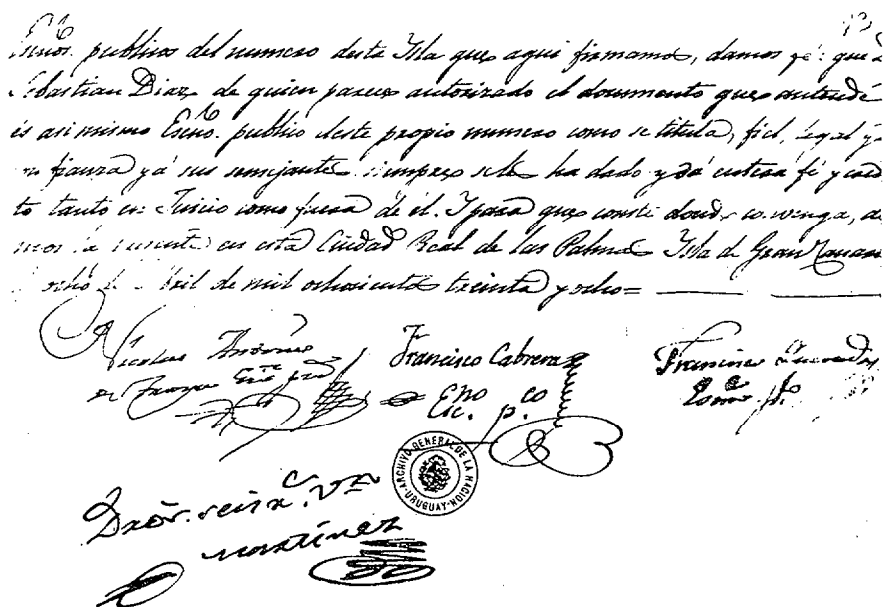 Escnos. publicos del numero desta Ysla que aqui firmamos, damos fé: que
Sebastian Diaz, de quien parece autorizado el documento que antecede
es asimismo Escno. publico deste propio numero como se titula, fiel, legal y
confianza y á sus semejantes siempre se les ha dado y dá entera fé y
to tanto en Juicio como fuera de él. Y para que conste donde convenga, da
mos la presente en esta Ciudad Real de las Palmas Ysla de Gran Canaria
ocho de Abril de mil ochocientos treinta y ocho=
Nicolas Antonio
Francisco Cabrera
Francisco
Escno. pco.
ARCHIVO GENERAL DE LA NACION
URUGUAY
Martínez